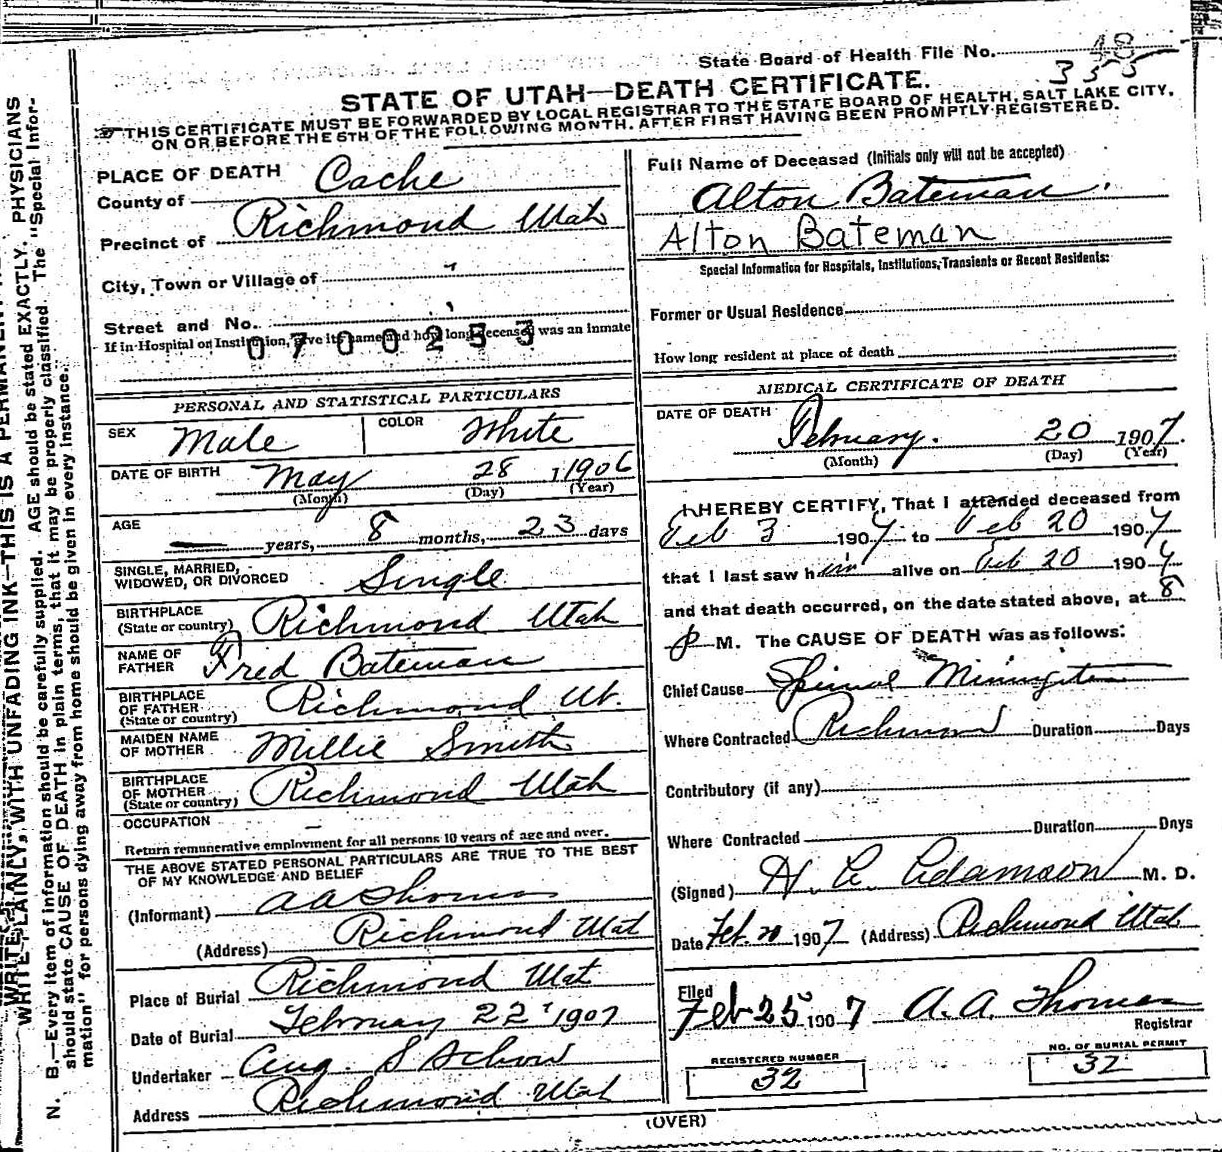 State Board of Health File No.
48
355
STATE OF UTAH—DEATH CERTIFICATE.
THIS CERTIFICATE MUST BE FORWARDED BY LOCAL REGISTRAR TO THE STATE BOARD OF HEALTH, SALT LAKE CITY,
ON OR BEFORE THE 5TH OF THE FOLLOWING MONTH, AFTER FIRST HAVING BEEN PROMPTLY REGISTERED.
PLACE OF DEATH
County of Cache
Precinct of Richmond Utah
City, Town or Village of
Street and No.
If in Hospital or Institution, give its name and how long deceased was an inmate
0700253
PERSONAL AND STATISTICAL PARTICULARS
SEX Male COLOR White
DATE OF BIRTH May 28 1906
(Month) (Day) (Year)
AGE — years, 8 months, 23 days
SINGLE, MARRIED,
WIDOWED, OR DIVORCED Single
BIRTHPLACE
(State or country) Richmond Utah
NAME OF
FATHER Fred Bateman
BIRTHPLACE
OF FATHER
(State or country) Richmond Ut.
MAIDEN NAME
OF MOTHER Millie Smith
BIRTHPLACE
OF MOTHER
(State or country) Richmond Utah
OCCUPATION —
Return remunerative employment for all persons 10 years of age and over.
THE ABOVE STATED PERSONAL PARTICULARS ARE TRUE TO THE BEST
OF MY KNOWLEDGE AND BELIEF
(Informant) A A Thomas
(Address) Richmond Utah
Place of Burial Richmond Utah
Date of Burial February 22 1907
Undertaker Aug. S Schow
Address Richmond Utah
Full Name of Deceased (Initials only will not be accepted)
Alton Bateman
Alton Bateman
Special Information for Hospitals, Institutions, Transients or Recent Residents:
Former or Usual Residence
How long resident at place of death
MEDICAL CERTIFICATE OF DEATH
DATE OF DEATH February. 20 1907.
(Month) (Day) (Year)
I HEREBY CERTIFY, That I attended deceased from
Feb 3 1907 to Feb 20 1907
that I last saw him alive on Feb 20 1907
and that death occurred, on the date stated above, at 8
P M. The CAUSE OF DEATH was as follows:
Chief Cause Spinal
Where Contracted Richmond Duration Days
Contributory (if any)
Where Contracted Duration Days
(Signed) H. C. Adamson M. D.
Date Feb. 20 1907 (Address) Richmond Utah
Filed
Feb 25 1907 A. A. Thomas
Registrar
REGISTERED NUMBER
32
NO. OF BURIAL PERMIT
32
(OVER)
WRITE PLAINLY, WITH UNFADING INK—THIS IS A PERMANENT
N. B.—Every item of information should be carefully supplied. AGE should be stated EXACTLY. PHYSICIANS
should state CAUSE OF DEATH in plain terms, that it may be properly classified. The "Special Infor-
mation" for persons dying away from home should be given in every instance.